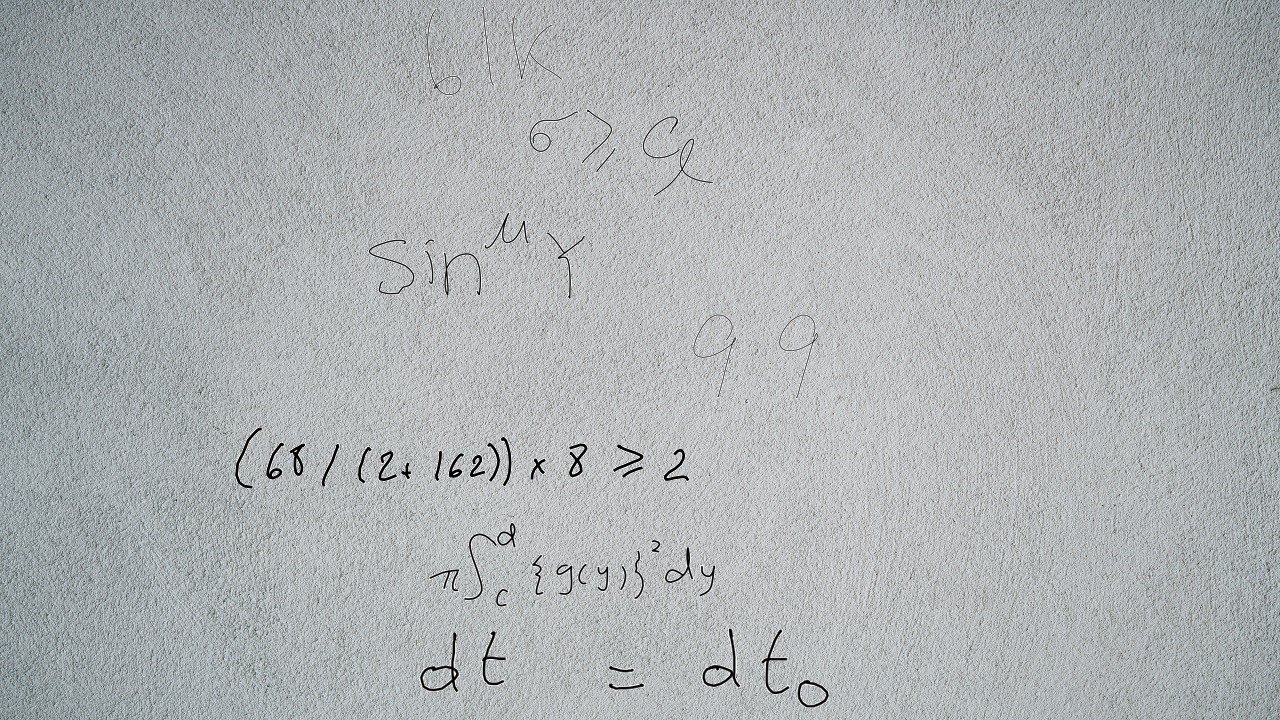 61K
σ ≥ Cl
sin^μ Y
9.9
(68 / (2 + 162)) × 8 ≥ 2
π∫_c^d {g(y)}^2 dy
dt = dt_0